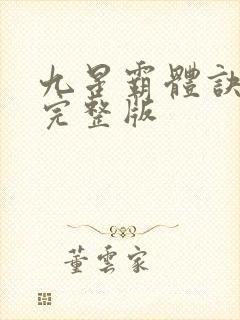 九星霸體訣
完整版
董雲家